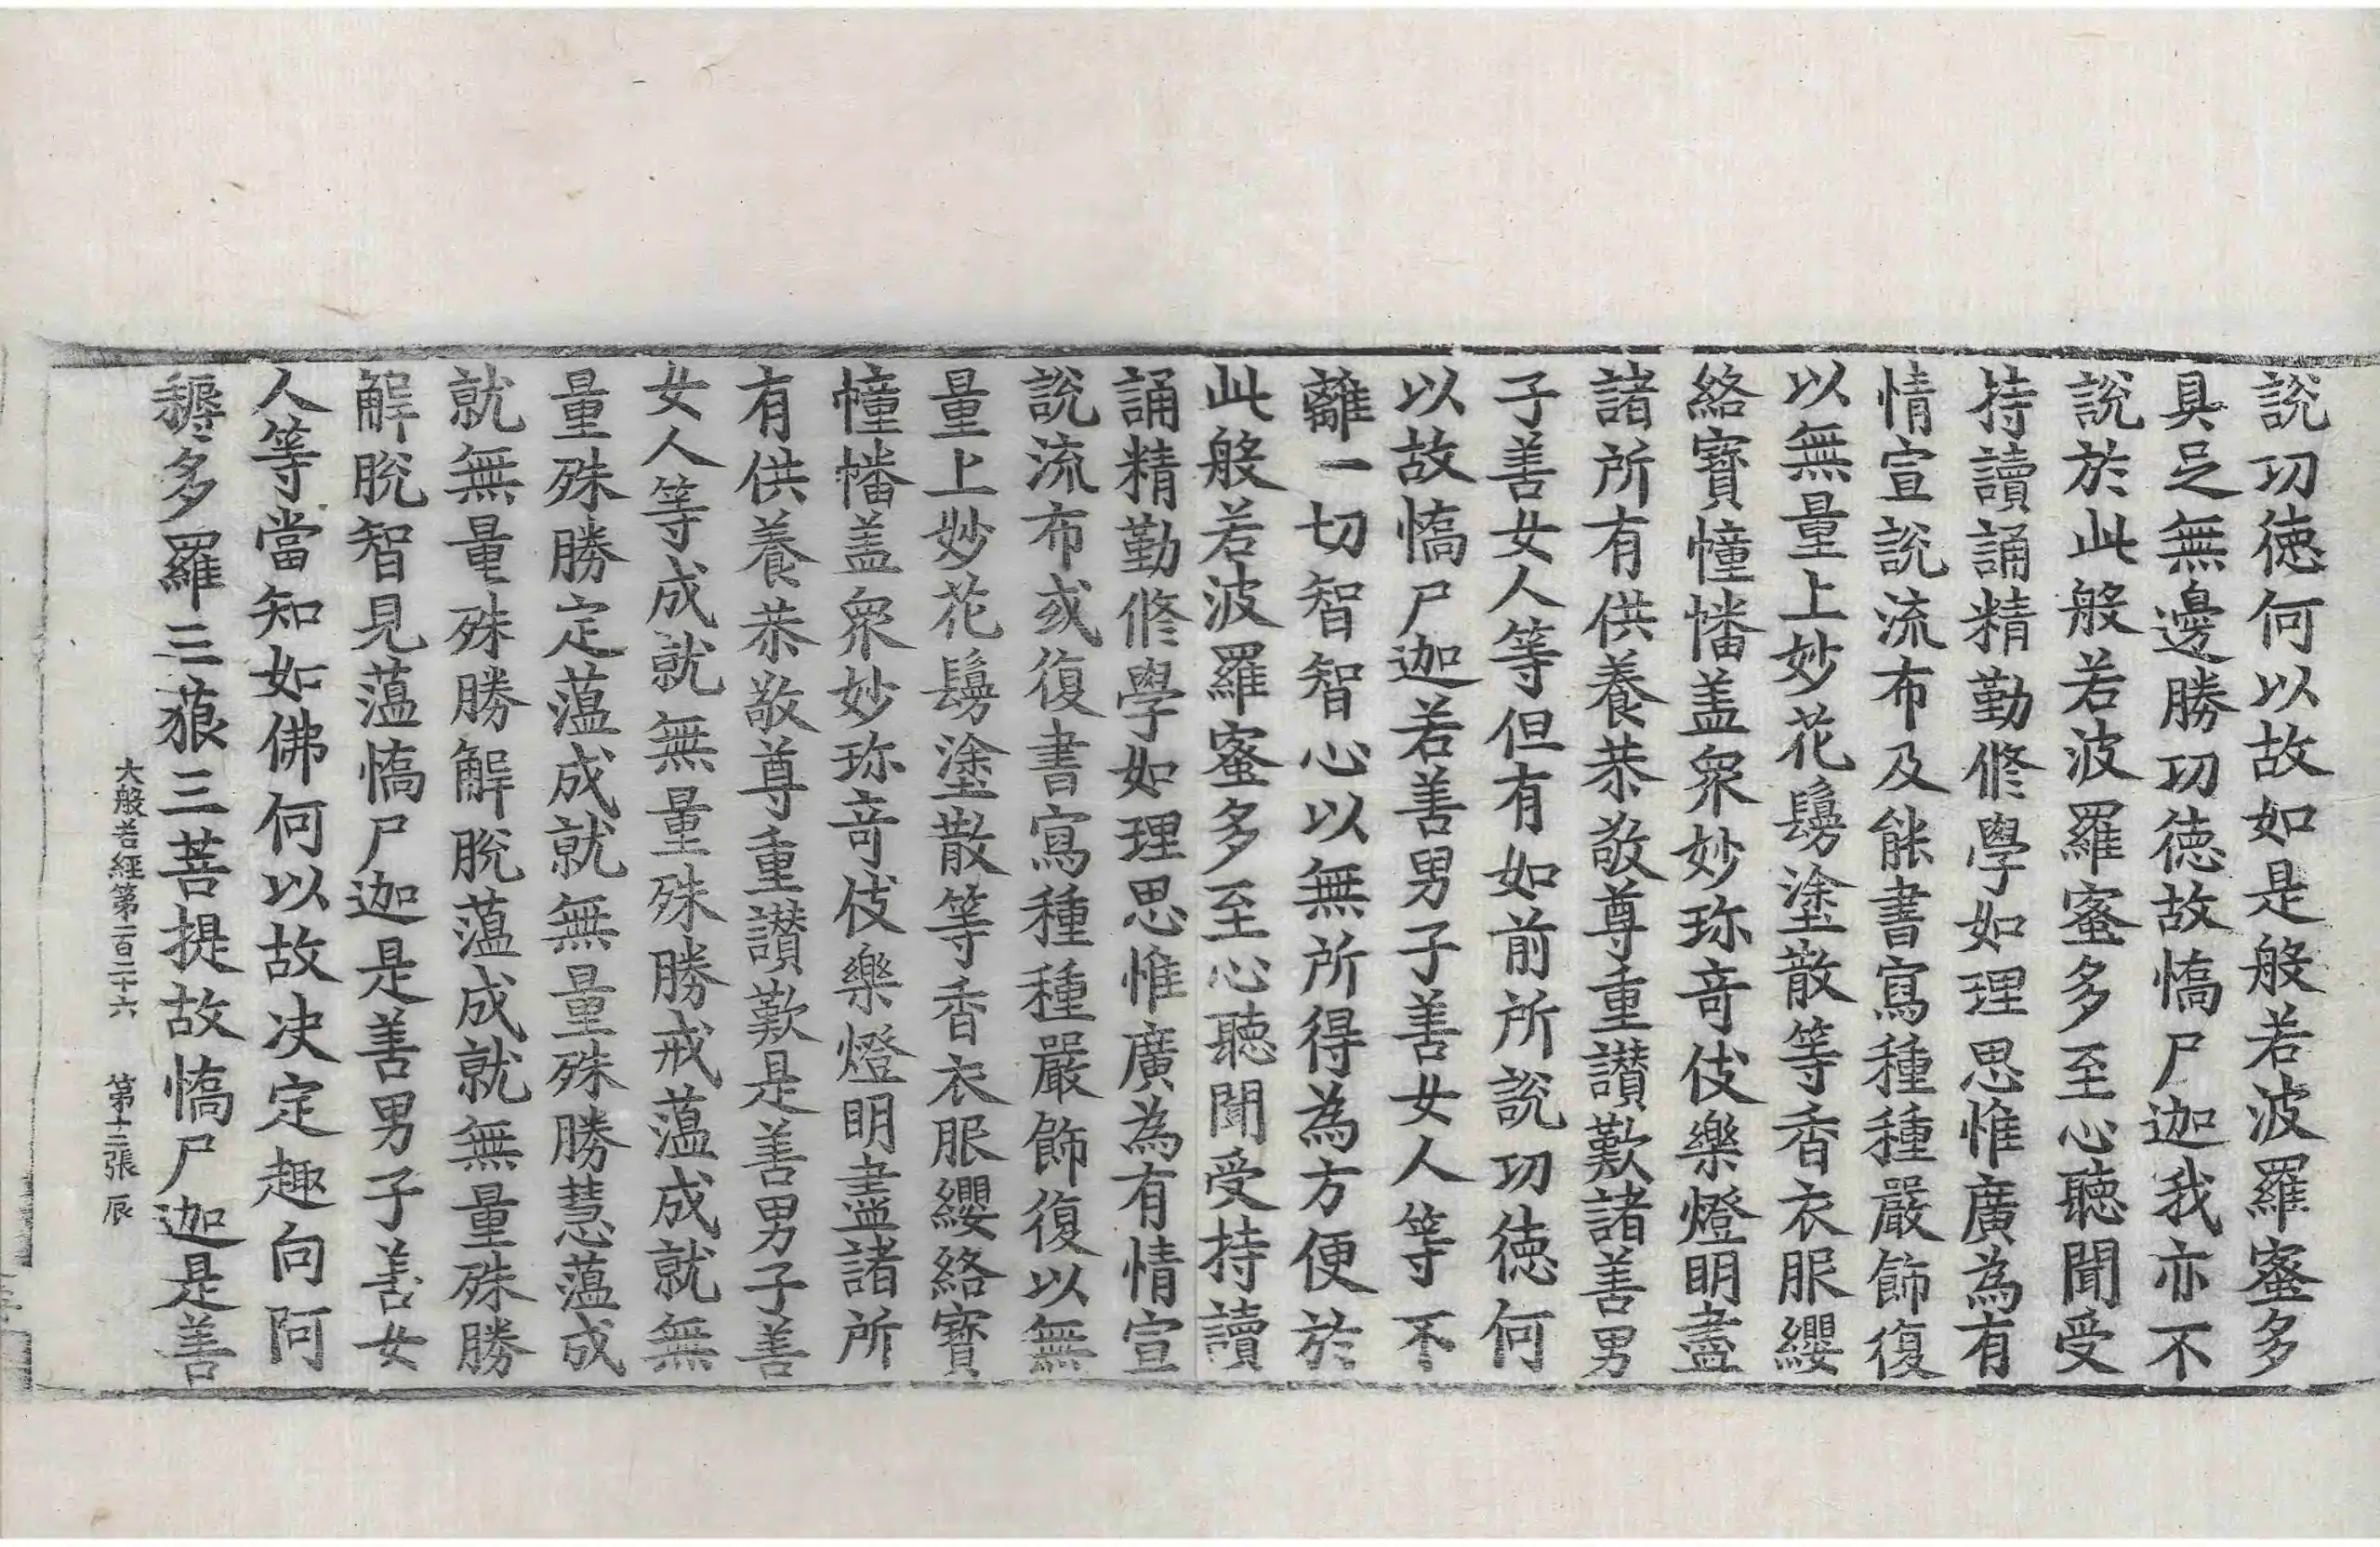 說功德何以故如是般若波羅蜜多
具足無邊勝功德故憍尸迦我亦不
說於此般若波羅蜜多至心聽聞受
持讀誦精勤修學如理思惟廣為有
情宣說流布及能書寫種種嚴飾復
以無量上妙花鬘塗散等香衣服纓
絡寶幢幡盖衆妙珎竒伎樂燈明盡
諸所有供養恭敬尊重讃歎諸善男
子善女人等但有如前所說功德何
以故憍尸迦若善男子善女人等不
離一切智智心以無所得為方便於
此般若波羅蜜多至心聽聞受持讀
誦精勤修學如理思惟廣為有情宣
說流布或復書寫種種嚴飾復以無
量上妙花鬘塗散等香衣服纓絡寶
幢幡盖衆妙珎竒伎樂燈明盡諸所
有供養恭敬尊重讃歎是善男子善
女人等成就無量殊勝戒蕰成就無
量殊勝定蕰成就無量殊勝慧蕰成
就無量殊勝解脫蕰成就無量殊勝
解脫智見蕰憍尸迦是善男子善女
人等當知如佛何以故决定趣向阿
耨多羅三藐三菩提故憍尸迦是善
大般若經第一百二十六 第十二張 辰